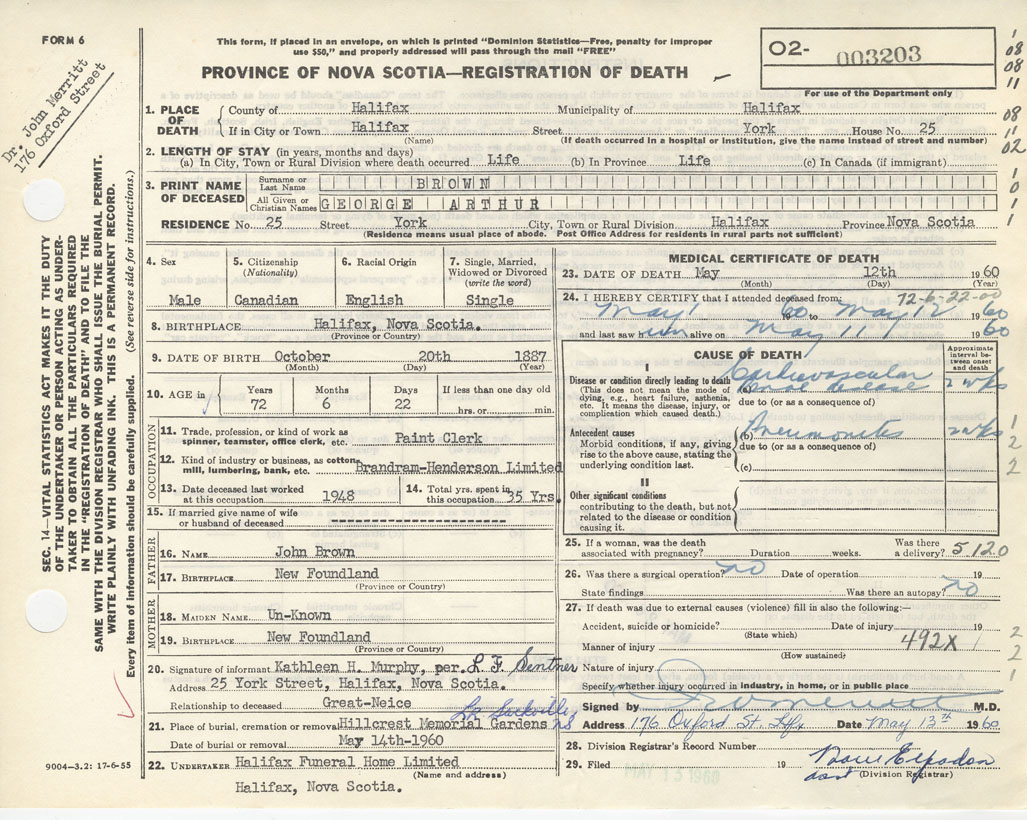 FORM 6
This form, if placed in an envelope, on which is printed "Dominion Statistics—Free, penalty for improper
use $50," and properly addressed will pass through the mail "FREE"
PROVINCE OF NOVA SCOTIA—REGISTRATION OF DEATH
O2- 003203
For use of the Department only
Dr. John Merritt
176 Oxford Street
SEC. 14—VITAL STATISTICS ACT MAKES IT THE DUTY
OF THE UNDERTAKER OR PERSON ACTING AS UNDER-
TAKER TO OBTAIN ALL THE PARTICULARS REQUIRED
IN THE "REGISTRATION OF DEATH" AND TO FILE THE
SAME WITH THE DIVISION REGISTRAR WHO SHALL ISSUE THE BURIAL PERMIT.
WRITE PLAINLY WITH UNFADING INK. THIS IS A PERMANENT RECORD.
Every item of information should be carefully supplied. (See reverse side for instructions.)
1. PLACE OF DEATH
County of Halifax Municipality of Halifax
If in City or Town Halifax Street York House No. 25
(Name) (If death occurred in a hospital or institution, give the name instead of street and number)
2. LENGTH OF STAY (in years, months and days)
(a) In City, Town or Rural Division where death occurred Life (b) In Province Life (c) In Canada (if immigrant)
3. PRINT NAME OF DECEASED
Surname or Last Name BROWN
All Given or Christian Names GEORGE ARTHUR
RESIDENCE No. 25 Street York City, Town or Rural Division Halifax Province Nova Scotia
(Residence means usual place of abode. Post Office Address for residents in rural parts not sufficient)
4. Sex Male
5. Citizenship (Nationality) Canadian
6. Racial Origin English
7. Single, Married, Widowed or Divorced (write the word) Single
8. BIRTHPLACE Halifax, Nova Scotia.
(Province or Country)
9. DATE OF BIRTH October 20th 1887
(Month) (Day) (Year)
10. AGE in Years 72 Months 6 Days 22 If less than one day old hrs. or min.
OCCUPATION
11. Trade, profession, or kind of work as spinner, teamster, office clerk, etc. Paint Clerk
12. Kind of industry or business, as cotton mill, lumbering, bank, etc. Brandram-Henderson Limited
13. Date deceased last worked at this occupation 1948
14. Total yrs. spent in this occupation 35 Yrs.
15. If married give name of wife or husband of deceased ----------------
FATHER
16. NAME John Brown
17. BIRTHPLACE New Foundland
(Province or Country)
MOTHER
18. MAIDEN NAME Un-Known
19. BIRTHPLACE New Foundland
(Province or Country)
20. Signature of informant Kathleen H. Murphy, per.
Address 25 York Street, Halifax, Nova Scotia.
Relationship to deceased Great-Neice
Sackville
21. Place of burial, cremation or removal Hillcrest Memorial Gardens NS
Date of burial or removal May 14th-1960
22. UNDERTAKER Halifax Funeral Home Limited
(Name and address)
Halifax, Nova Scotia.
9004-3.2: 17-6-55
MEDICAL CERTIFICATE OF DEATH
23. DATE OF DEATH May 12th 1960
(Month) (Day) (Year)
24. I HEREBY CERTIFY that I attended deceased from: 72-6-22-00
May 1 60 to May 12 1960
and last saw him alive on May 11 1960
CAUSE OF DEATH
Approximate interval between onset and death
I
Disease or condition directly leading to death (a) disease 2 wks
(This does not mean the mode of dying, e.g., heart failure, asthenia, etc. It means the disease, injury, or complication which caused death.)
due to (or as a consequence of)
Antecedent causes (b) Pneumonitis 2 wks
Morbid conditions, if any, giving rise to the above cause, stating the underlying condition last.
due to (or as a consequence of)
(c)
II
Other significant conditions
contributing to the death, but not related to the disease or condition causing it.
25. If a woman, was the death associated with pregnancy? Duration weeks. Was there a delivery? 5120
26. Was there a surgical operation? no Date of operation 19
State findings Was there an autopsy? no
27. If death was due to external causes (violence) fill in also the following:—
Accident, suicide or homicide? Date of injury 19
(State which)
Manner of injury 492X
(How sustained)
Nature of injury
Specify whether injury occurred in industry, in home, or in public place
Signed by M.D.
Address 176 Oxford St. Hfx Date May 13th 1960
28. Division Registrar's Record Number
29. Filed MAY 13 1960 19
(Division Registrar)
1
08
08
11
08
11
02
1
0
1
1
1
2
2
2
2
1